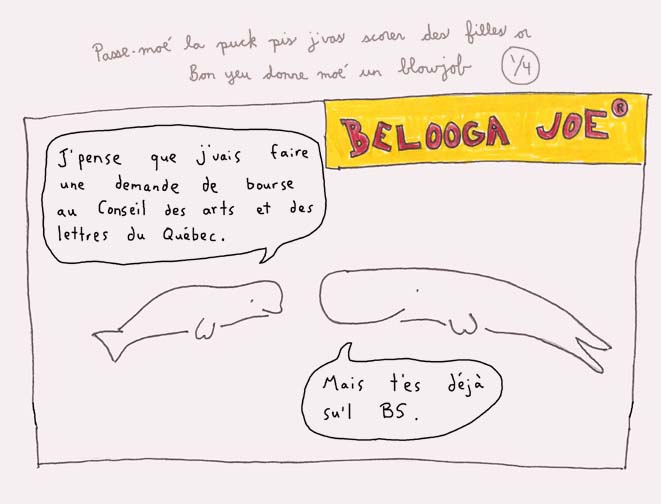 Passe-moé la puck pis j'vas scorer des filles or
Bon yeu donne moé un blowjob 1/4
BELOOGA JOE®
J'pense que j'vais faire
une demande de bourse
au Conseil des arts et des
lettres du Québec.
Mais t'es déjà
su'l BS.